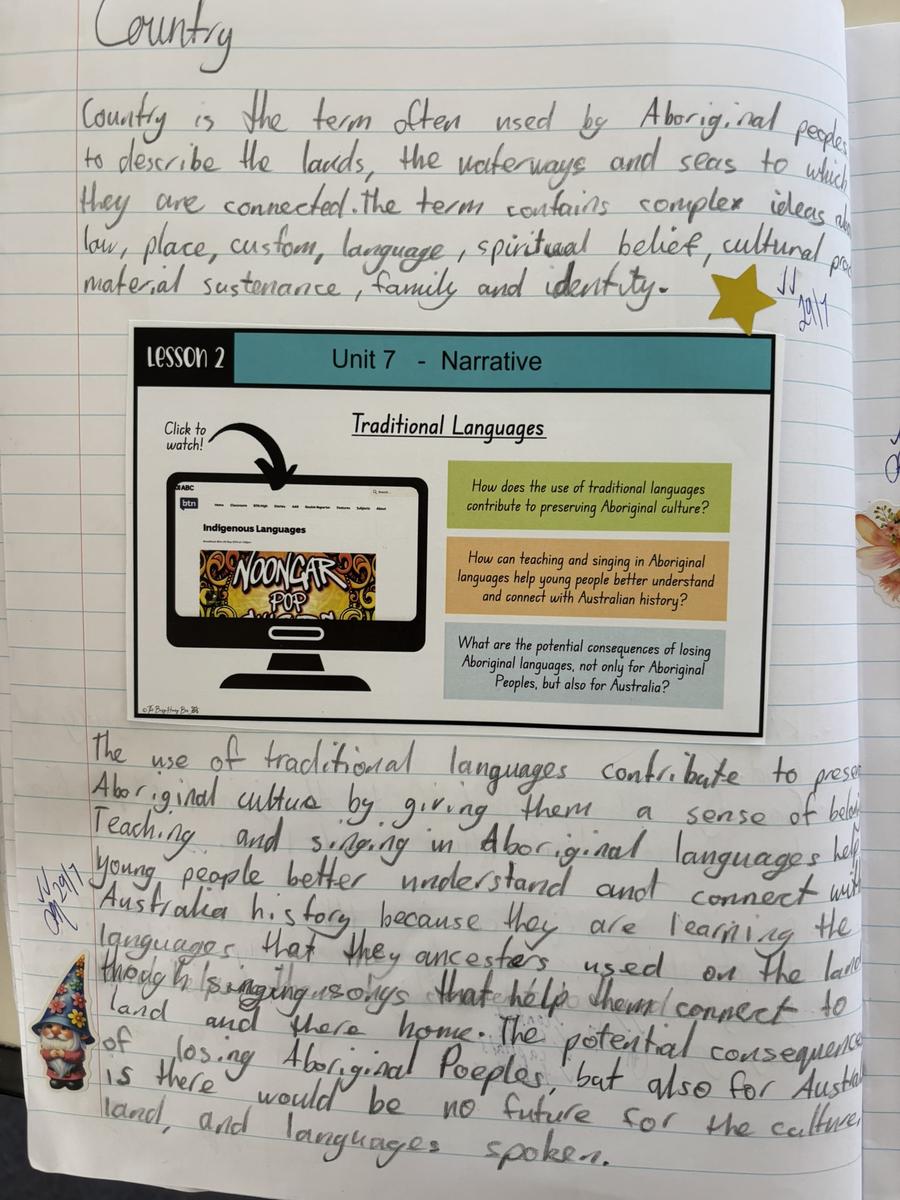 Country
Country is the term often used by Aboriginal peoples
to describe the lands, the waterways and seas to which
they are connected. The term contains complex ideas
law, place, custom, language, spiritual belief, cultural
material sustenance, family and identity.
29/7
LESSON 2
Unit 7 - Narrative
Click to
watch!
Traditional Languages
ABC
btn
Indigenous Languages
NOONGAR
POP
How does the use of traditional languages
contribute to preserving Aboriginal culture?
How can teaching and singing in Aboriginal
languages help young people better understand
and connect with Australian history?
What are the potential consequences of losing
Aboriginal languages, not only for Aboriginal
Peoples, but also for Australia?
The use of traditional languages contribute to
Aboriginal cultue by giving them a sense of
Teaching and singing in Aboriginal languages help
young people better understand and connect with
Australia history because they are learning the
languages that they ancesters used on the land
though singing songs that help them connect to
land and there home. The potential consequence
of losing Aboriginal Poeples, but also for
is there would be no future for the culture,
land, and languages spoken.
29/7